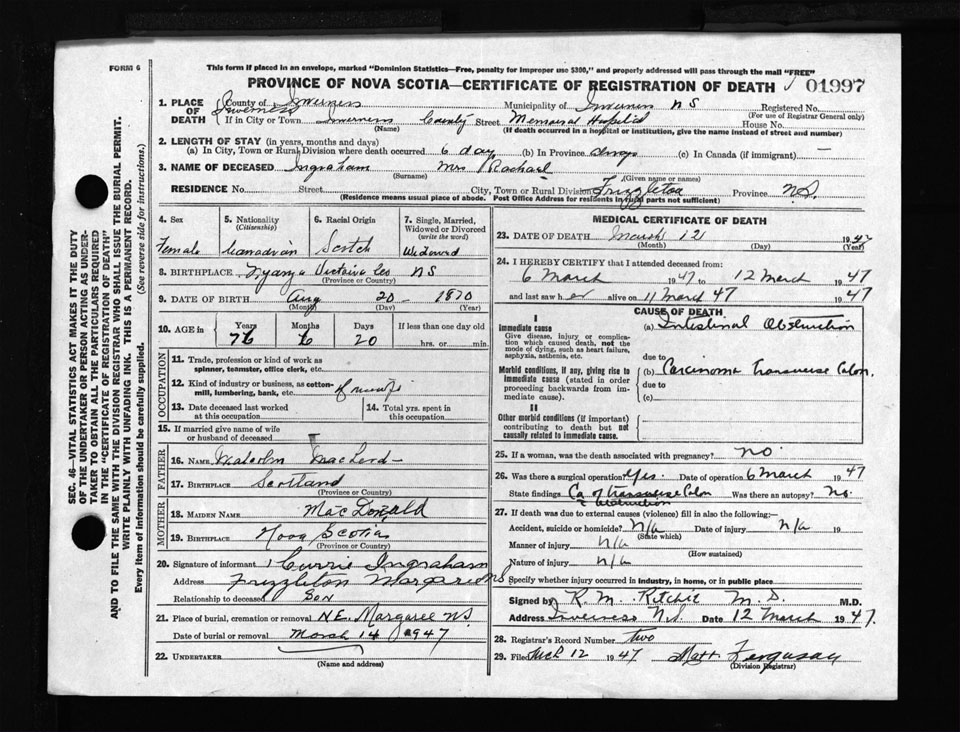 FORM 6
This form if placed in an envelope, marked "Dominion Statistics—Free, penalty for improper use $300," and properly addressed will pass through the mail "FREE"
PROVINCE OF NOVA SCOTIA—CERTIFICATE OF REGISTRATION OF DEATH 01997
SEC. 46—VITAL STATISTICS ACT MAKES IT THE DUTY
OF THE UNDERTAKER OR PERSON ACTING AS UNDER-
TAKER TO OBTAIN ALL THE PARTICULARS REQUIRED
IN THE "CERTIFICATE OF REGISTRATION OF DEATH"
AND TO FILE THE SAME WITH THE DIVISION REGISTRAR WHO SHALL ISSUE THE BURIAL PERMIT.
WRITE PLAINLY WITH UNFADING INK. THIS IS A PERMANENT RECORD.
Every item of information should be carefully supplied. (See reverse side for instructions.)
1. PLACE OF DEATH County of Inverness Municipality of Inverness N S Registered No.
(For use of Registrar General only)
Inverness
If in City or Town Inverness County Street Memorial Hospital House No.
(Name) (If death occurred in a hospital or institution, give the name instead of street and number)
2. LENGTH OF STAY (in years, months and days)
(a) In City, Town or Rural Division where death occurred 6 day (b) In Province always (c) In Canada (if immigrant) —
3. NAME OF DECEASED Ingraham Mrs Rachael
(Surname) (Given name or names)
RESIDENCE No. Street City, Town or Rural Division Frizzleton Province N.S.
(Residence means usual place of abode. Post Office Address for residents in rural parts not sufficient)
4. Sex Female
5. Nationality (Citizenship) Canadian
6. Racial Origin Scotch
7. Single, Married, Widowed or Divorced (write the word) Widowed
8. BIRTHPLACE Victoria Co NS
(Province or Country)
9. DATE OF BIRTH Aug 20 - 1870
(Month) (Day) (Year)
10. AGE in Years 76 Months 6 Days 20 If less than one day old
hrs. or min.
OCCUPATION
11. Trade, profession or kind of work as
spinner, teamster, office clerk, etc.
12. Kind of industry or business, as cotton-
mill, lumbering, bank, etc.
13. Date deceased last worked
at this occupation
14. Total yrs. spent in
this occupation
15. If married give name of wife
or husband of deceased
FATHER
16. NAME Malcolm
17. BIRTHPLACE Scotland
(Province or Country)
MOTHER
18. MAIDEN NAME MacDonald
19. BIRTHPLACE Nova Scotia
(Province or Country)
20. Signature of informant Currie Ingraham
Address Frizzleton Margaree NS
Relationship to deceased Son
21. Place of burial, cremation or removal N.E. Margaree NS.
Date of burial or removal March 14 1947
22. UNDERTAKER
(Name and address)
MEDICAL CERTIFICATE OF DEATH
23. DATE OF DEATH March 12 1947
(Month) (Day) (Year)
24. I HEREBY CERTIFY that I attended deceased from
6 March 1947 to 12 March 1947
and last saw her alive on 11 March 47 1947
CAUSE OF DEATH
I
Immediate cause (a) Intestinal Obstruction
Give disease, injury or complica-
tion which caused death, not the
mode of dying, such as heart failure,
asphyxia, asthenia, etc. due to
Morbid conditions, if any, giving rise to (b) Carcinoma Transverse Colon.
immediate cause (stated in order due to
proceeding backwards from im-
mediate cause). (c)
II
Other morbid conditions (if important)
contributing to death but not
causally related to immediate cause.
25. If a woman, was the death associated with pregnancy? no
26. Was there a surgical operation? Yes. Date of operation 6 March 1947
State findings Ca of transverse Colon Was there an autopsy? No.
27. If death was due to external causes (violence) fill in also the following:—
Accident, suicide or homicide? N/a Date of injury N/a 19
(State which)
Manner of injury N/a
(How sustained)
Nature of injury N/a
Specify whether injury occurred in industry, in home, or in public place
Signed by R. M. Ritchie M.D. M.D.
Address Inverness N.S Date 12 March 1947.
28. Registrar's Record Number Two
29. Filed Mch 12 1947 Matt Ferguson
(Division Registrar)